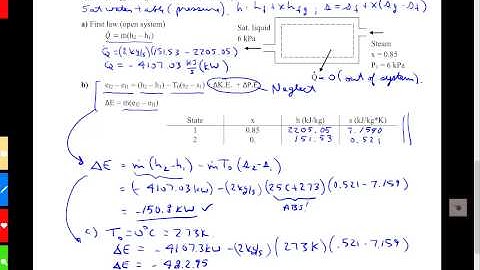 Sat water table (pressure). h = hf + x hfg, s = sf + x(sg - sf)
a) First law (open system)
Q̇ = ṁ(h₂ – h₁)
Q̇ = (2kg/s)(151.53 - 2205.05)
Q̇ = - 4107.03 kJ/s (kW)
Sat. liquid
6 kPa
Steam
x = 0.85
P₁ = 6 kPa
Q̇ = 0 (out of system).
b) e₁₂ – e₁₁ = (h₂ – h₁) – T₀(s₂ – s₁) + ΔK.E. + ΔP.E. Neglect
ΔĖ = ṁ(e₁₂ – e₁₁)
State x h (kJ/kg) s (kJ/kg*K)
1 0.85 2205.05 7.1590
2 0. 151.53 0.521
ΔĖ = ṁ(h₂-h₁) - ṁT₀(s₂-s₁)
= (- 4107.03 kW) - (2kg/s)(25C+273)(0.521 - 7.159)
ABS!
= -150.8 kW ✓
c) T₀ = 0°C = 273K
ΔĖ = -4107.3kW - (2kg/s)(273K)(.521-7.159)
ΔĖ = - 482.95